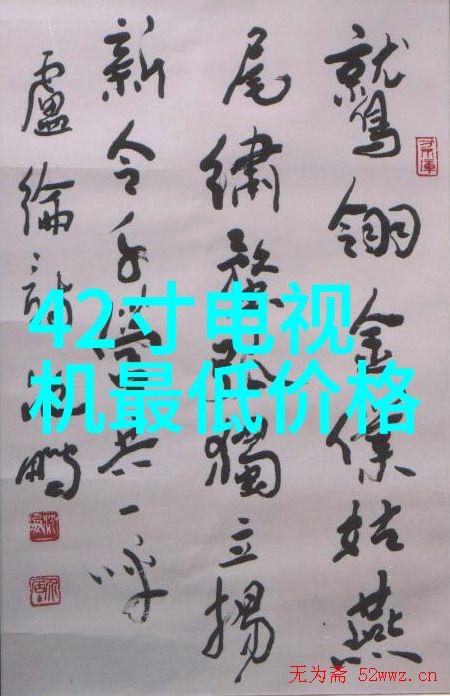 鷲翎金僕姑燕
尾繡獨立揚
新令千營共一呼
盧綸詩鵬
42寸电视
机最低价格
无为斋 52wwz.cn